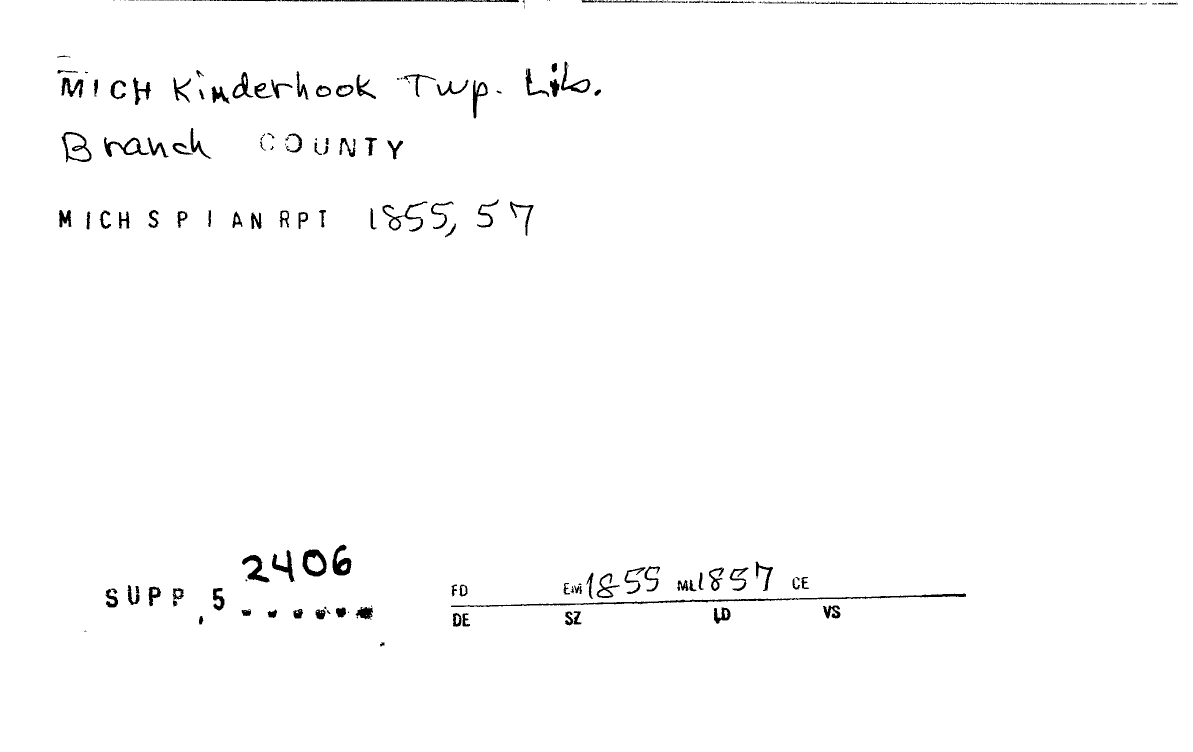 MICH Kinderhook Twp. Lib.
Branch COUNTY
MICH S P I AN RPT 1855, 57
2406
SUPP, 5 ......
FD EM 1855 ML 1857 CE
DE SZ LD VS